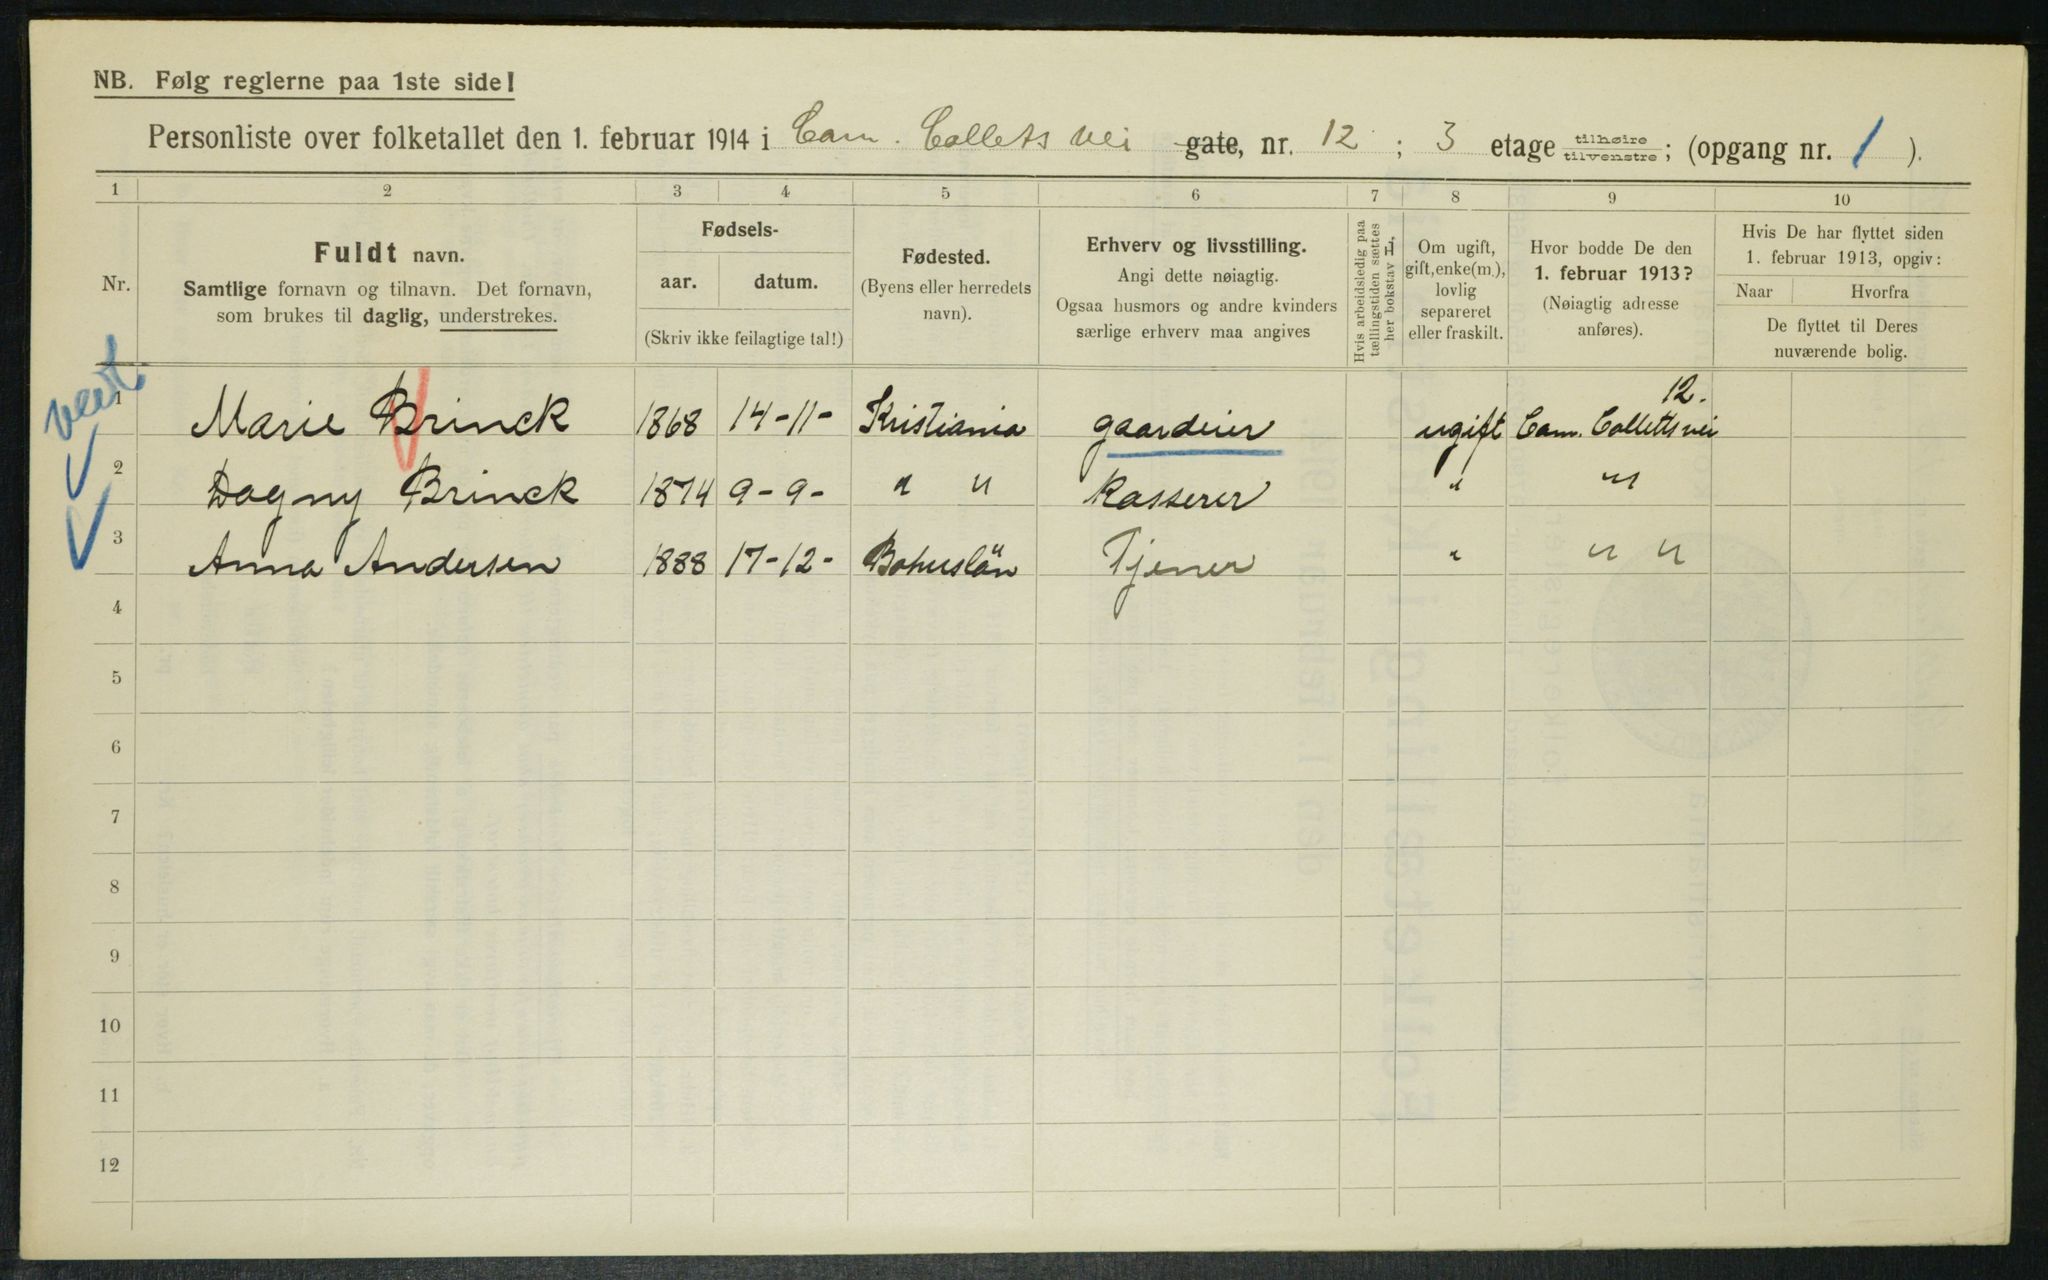 NB. Følg reglerne paa 1ste side!
Personliste over folketallet den 1. februar 1914 i Cam. Collets vei gate, nr. 12 ; 3 etage tilhøire tilvenstre ; (opgang nr. 1 ).
1 2 3 4 5 6 7 8 9 10
Nr.
Fuldt navn.
Samtlige fornavn og tilnavn. Det fornavn,
som brukes til daglig, understrekes.
Fødsels-
aar. datum.
(Skriv ikke feilagtige tal!)
Fødested.
(Byens eller herredets
navn).
Erhverv og livsstilling.
Angi dette nøiagtig.
Ogsaa husmors og andre kvinders
særlige erhverv maa angives
Hvis arbeidsledig paa
tællingstiden sættes
her bokstav L.
Om ugift,
gift, enke(m.),
lovlig
separeret
eller fraskilt.
Hvor bodde De den
1. februar 1913?
(Nøiagtig adresse
anføres).
Hvis De har flyttet siden
1. februar 1913, opgiv:
Naar Hvorfra
De flyttet til Deres
nuværende bolig.
12.
1 Marie Brinck 1868 14-11- Kristiania gaardeier ugift Cam. Colletts vei
2 Dagny Brinck 1874 9-9- " " Kasserer " "
3 Anna Andersen 1888 17-12- Bohuslän Tjener " " "
4
5
6
7
8
9
10
11
12